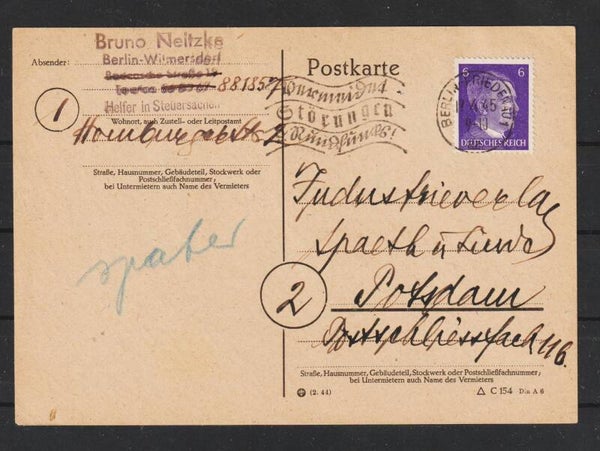 Absender:
Bruno Neitzke
Berlin-Wilmersdorf
881857
Helfer in Steuersachen
Wohnort, auch Zustell- oder Leitpostamt
1
Straße, Hausnummer, Gebäudeteil, Stockwerk oder
Postschließfachnummer;
bei Untermietern auch Name des Vermieters
später
Vermeidet
Störungen
Rundfunks!
Postkarte
6 6
DEUTSCHES REICH
BERLIN-FRIEDENAU
Industrieverlag
Spaeth u Linde
2
Potsdam
Postschliessfach 116.
Straße, Hausnummer, Gebäudeteil, Stockwerk oder Postschließfachnummer;
bei Untermietern auch Name des Vermieters
(2. 44)
C 154 Din A 6